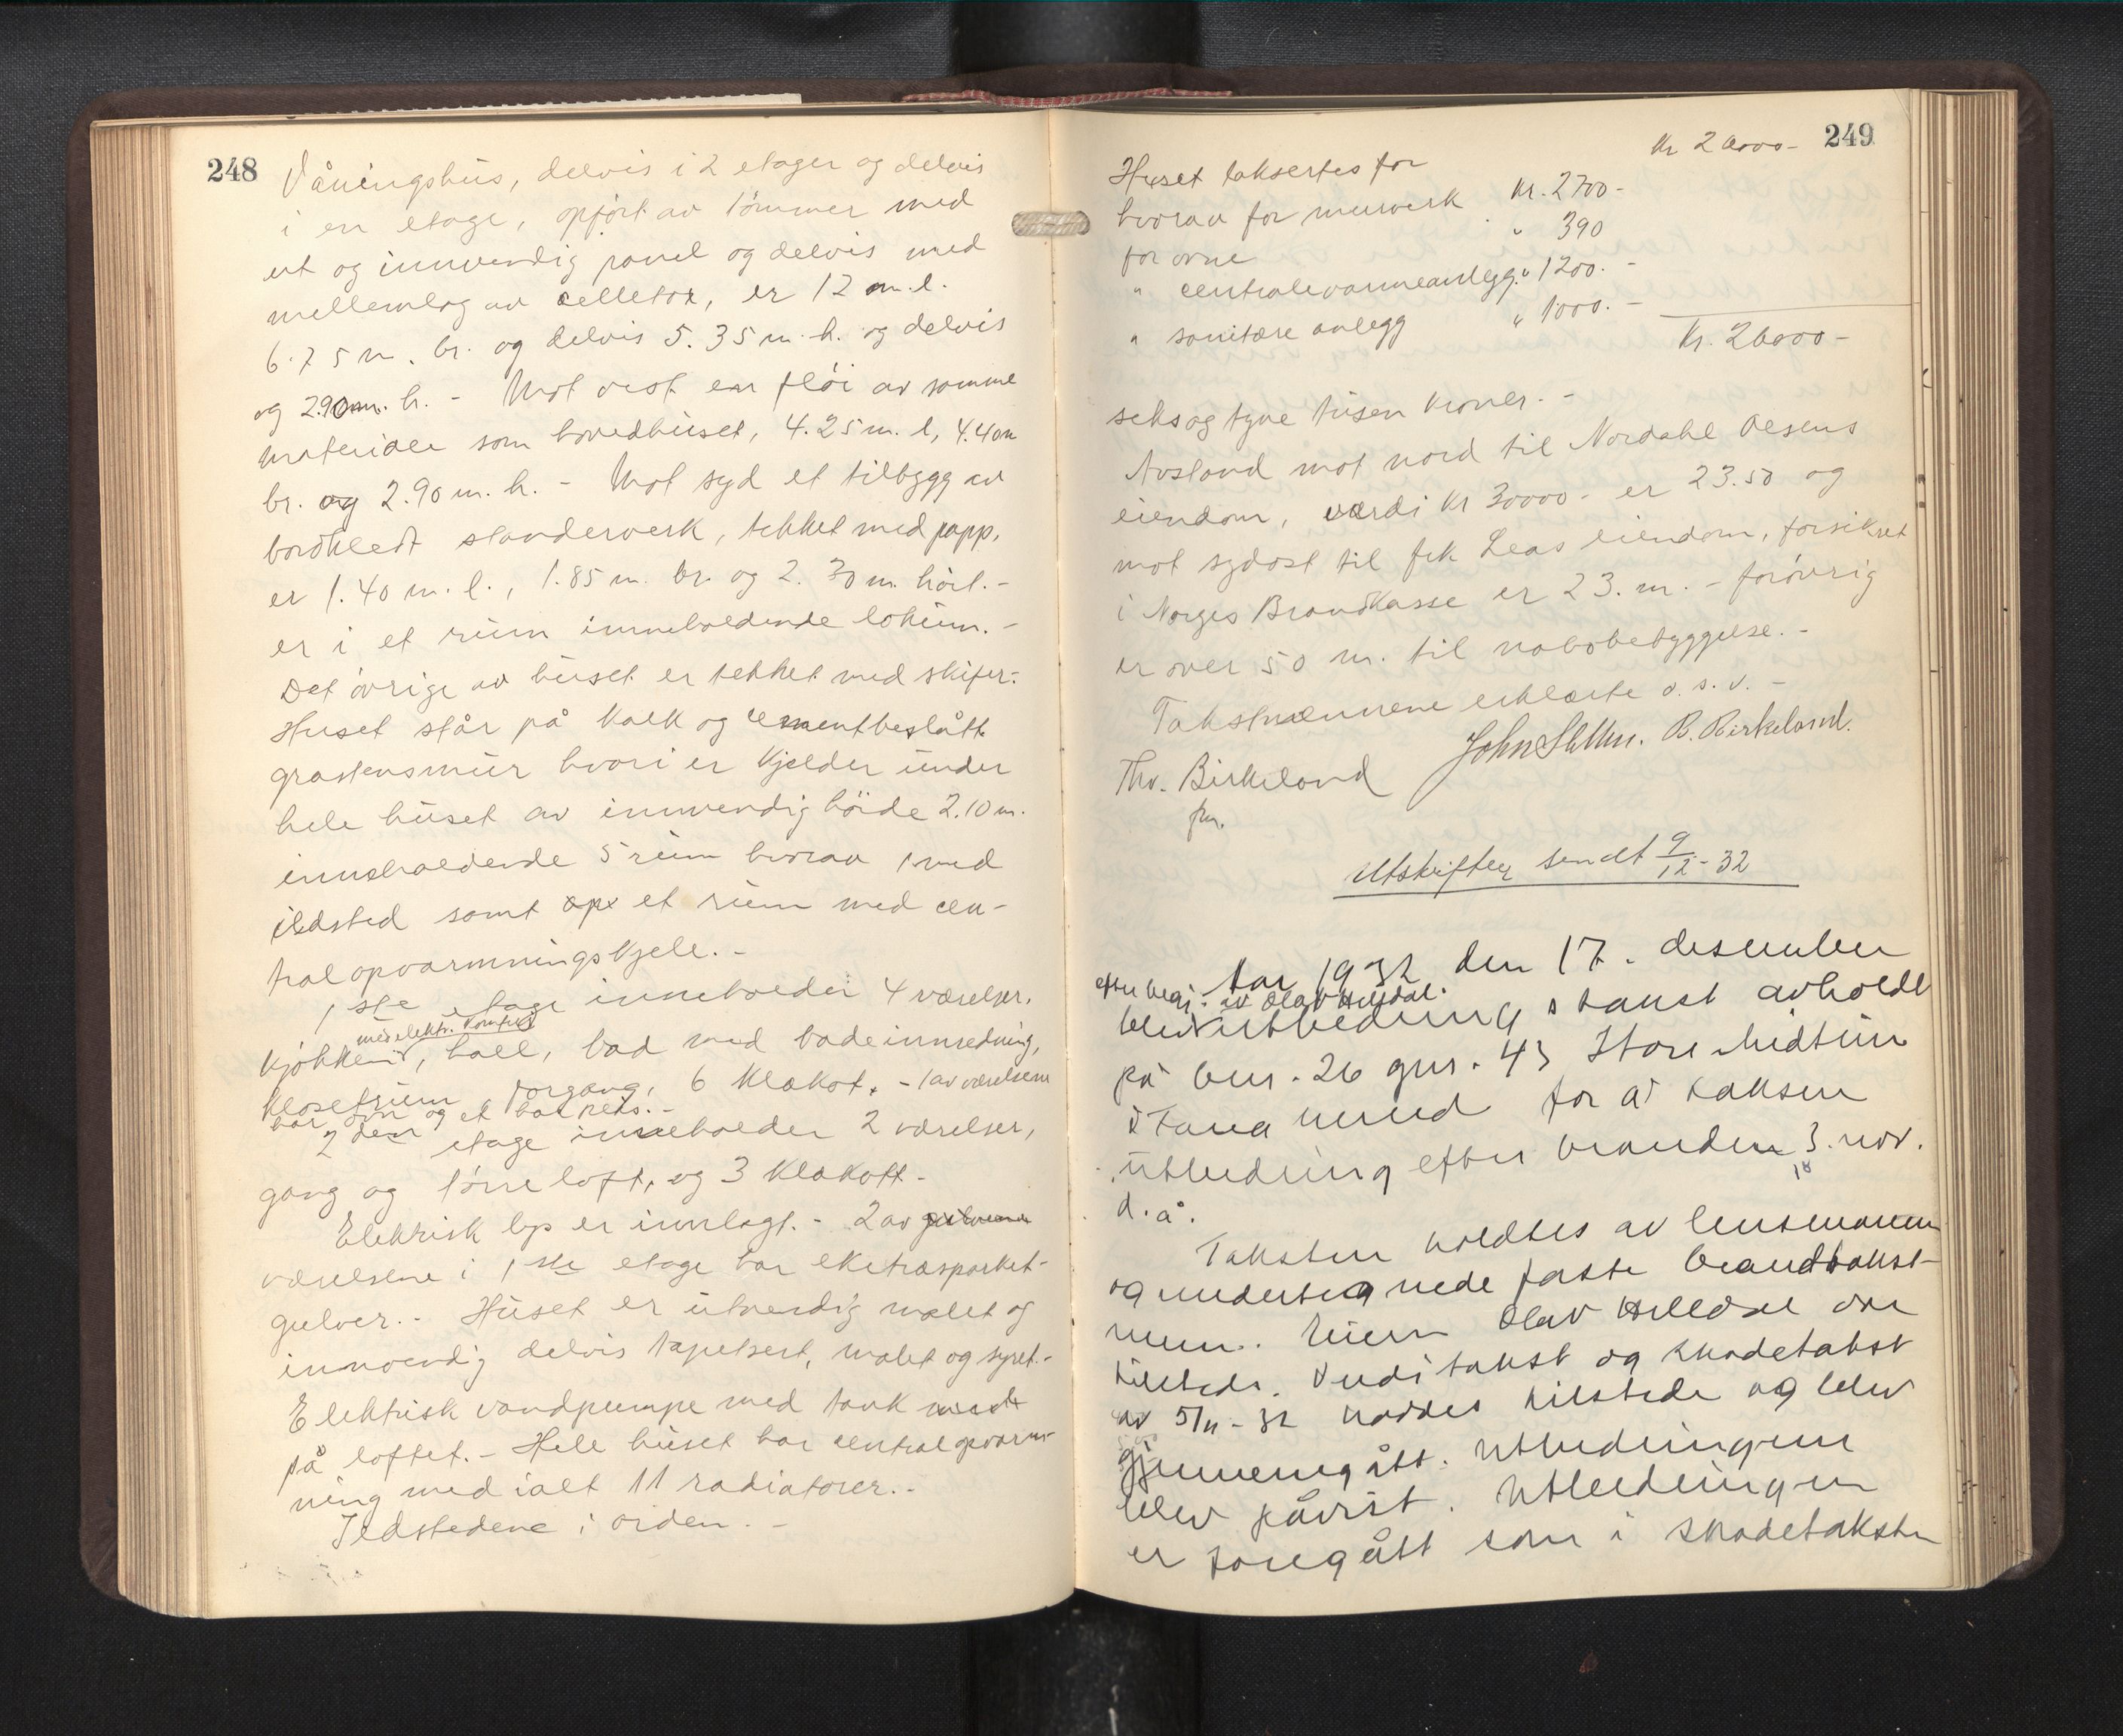 248
Våningshus, delvis i 2 etager og delvis
i en etage, opført av tømmer med
ut og innvendig panel og delvis med
mellemlag av celletox, er 12 m. l.
6.75 m. br. og delvis 5.35 m. h. og delvis
og 2.90 m. h. - Mot vest en fløi av samme
materialer som hovedhuset, 4.25 m. l, 4.40 m
br. og 2.90 m. h. - Mot syd et tilbygg av
bordkledt standerverk, tekket med papp,
er 1.40 m. l., 1.85 m. br. og 2.30 m. høit. -
er i et rum inneholdende lokum. -
Det øvrige av huset er tekket med skifer. -
Huset står på kalk og cementbeslått
gråstensmur hvori er kjelder under
hele huset av innvendig høide 2.10 m.
inneholdende 5 rum hvorav 1 med
ildsted samt et rum med cen-
tralopvarmningskjele. -
1ste etage inneholder 4 værelser,
med elektr. komfyr
kjøkken, hall, bad med badeinnredning,
klosetrum, forgang, 6 klækot. - 1 av værelsene
har ovn og et har peis. -
2den etage inneholder 2 værelser,
gang og tørreloft, og 3 klækott. -
Elektrisk lys er innlagt. - 2 av
værelsene i 1ste etage har eketræsparket-
gulver. - Huset er utvendig malet og
innvendig delvis tapetsert, malet og syret. -
Elektrisk vandpumpe med tank
på loftet. - Hele huset har centralopvarm-
ning med ialt 11 radiatorer. -
Ildstedene i orden. -
249
Huset taksertes for kr 26000 -
hvorav for murverk kr. 2700 -
for ovne " 390
" centralevarmeanlegg " 1200. -
" sanitære anlegg " 1000. -
Kr. 26000 -
seksogtyve tusen kroner. -
Avstand mot nord til Nordahl Olsens
eiendom, værdi kr 30000 - er 23.50 og
mot sydost til frk Leas eiendom, forsikret
i Norges Brandkasse er 23. m. - forøvrig
er over 50 m. til nabobebyggelse. -
Takstmænnene erklærte o. s. v. -
Thv. Birkeland John R. Birkeland.
fm.
Utskrifter sendt 9/12-32
År 1932 den 17. desember
efter begj. av Olav Hilldal.
blev utbedringstakst avholdt
på bnr. 26 gnr. 43 Store Midtun
i Fana herred for å taksere
utbedring efter branden 3. nov.
d. å.
Taksten holdtes av lensmannen
og undertegnede faste brandtakst-
menn. Eieren Olav Hilldal var
tilstede. Verditakst og skadetakst
av 5/11-32 haddes tilstede og blev
gjennemgått. Utbedringene
blev påvist. Utbedringen
er foregått som i skadetaksten